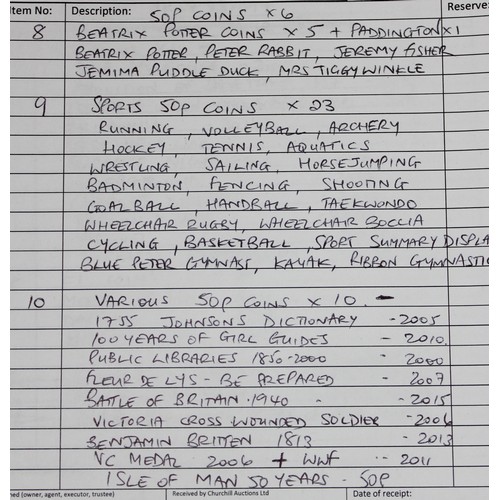 Item No: Description: 50P COINS x 6 Reserve:
8 BEATRIX POTTER COINS x 5 + PADDINGTON x 1
BEATRIX POTTER, PETER RABBIT, JEREMY FISHER
JEMIMA PUDDLE DUCK, MRS TIGGYWINKLE
9 SPORTS 50P COINS x 23
RUNNING, VOLLEYBALL, ARCHERY
HOCKEY, TENNIS, AQUATICS
WRESTLING, SAILING, HORSEJUMPING
BADMINTON, FENCING, SHOOTING
GOALBALL, HANDBALL, TAEKWONDO
WHEELCHAIR RUGBY, WHEELCHAIR BOCCIA
CYCLING, BASKETBALL, SPORT SUMMARY DISPLA
BLUE PETER GYMNAST, KAYAK, RIBBON GYMNASTIC
10 VARIOUS 50P COINS x 10. -
1755 JOHNSONS DICTIONARY - 2005
100 YEARS OF GIRL GUIDES - 2010.
PUBLIC LIBRARIES 1850-2000 - 2000
FLEUR DE LYS - BE PREPARED - 2007
BATTLE OF BRITAIN 1940 - 2015
VICTORIA CROSS WOUNDED SOLDIER - 2006
BENJAMIN BRITTEN 1813 - 2013
VC MEDAL 2006 + WWF - 2011
ISLE OF MAN 50 YEARS - 50P
ned (owner, agent, executor, trustee) Received by Churchill Auctions Ltd Date of receipt: